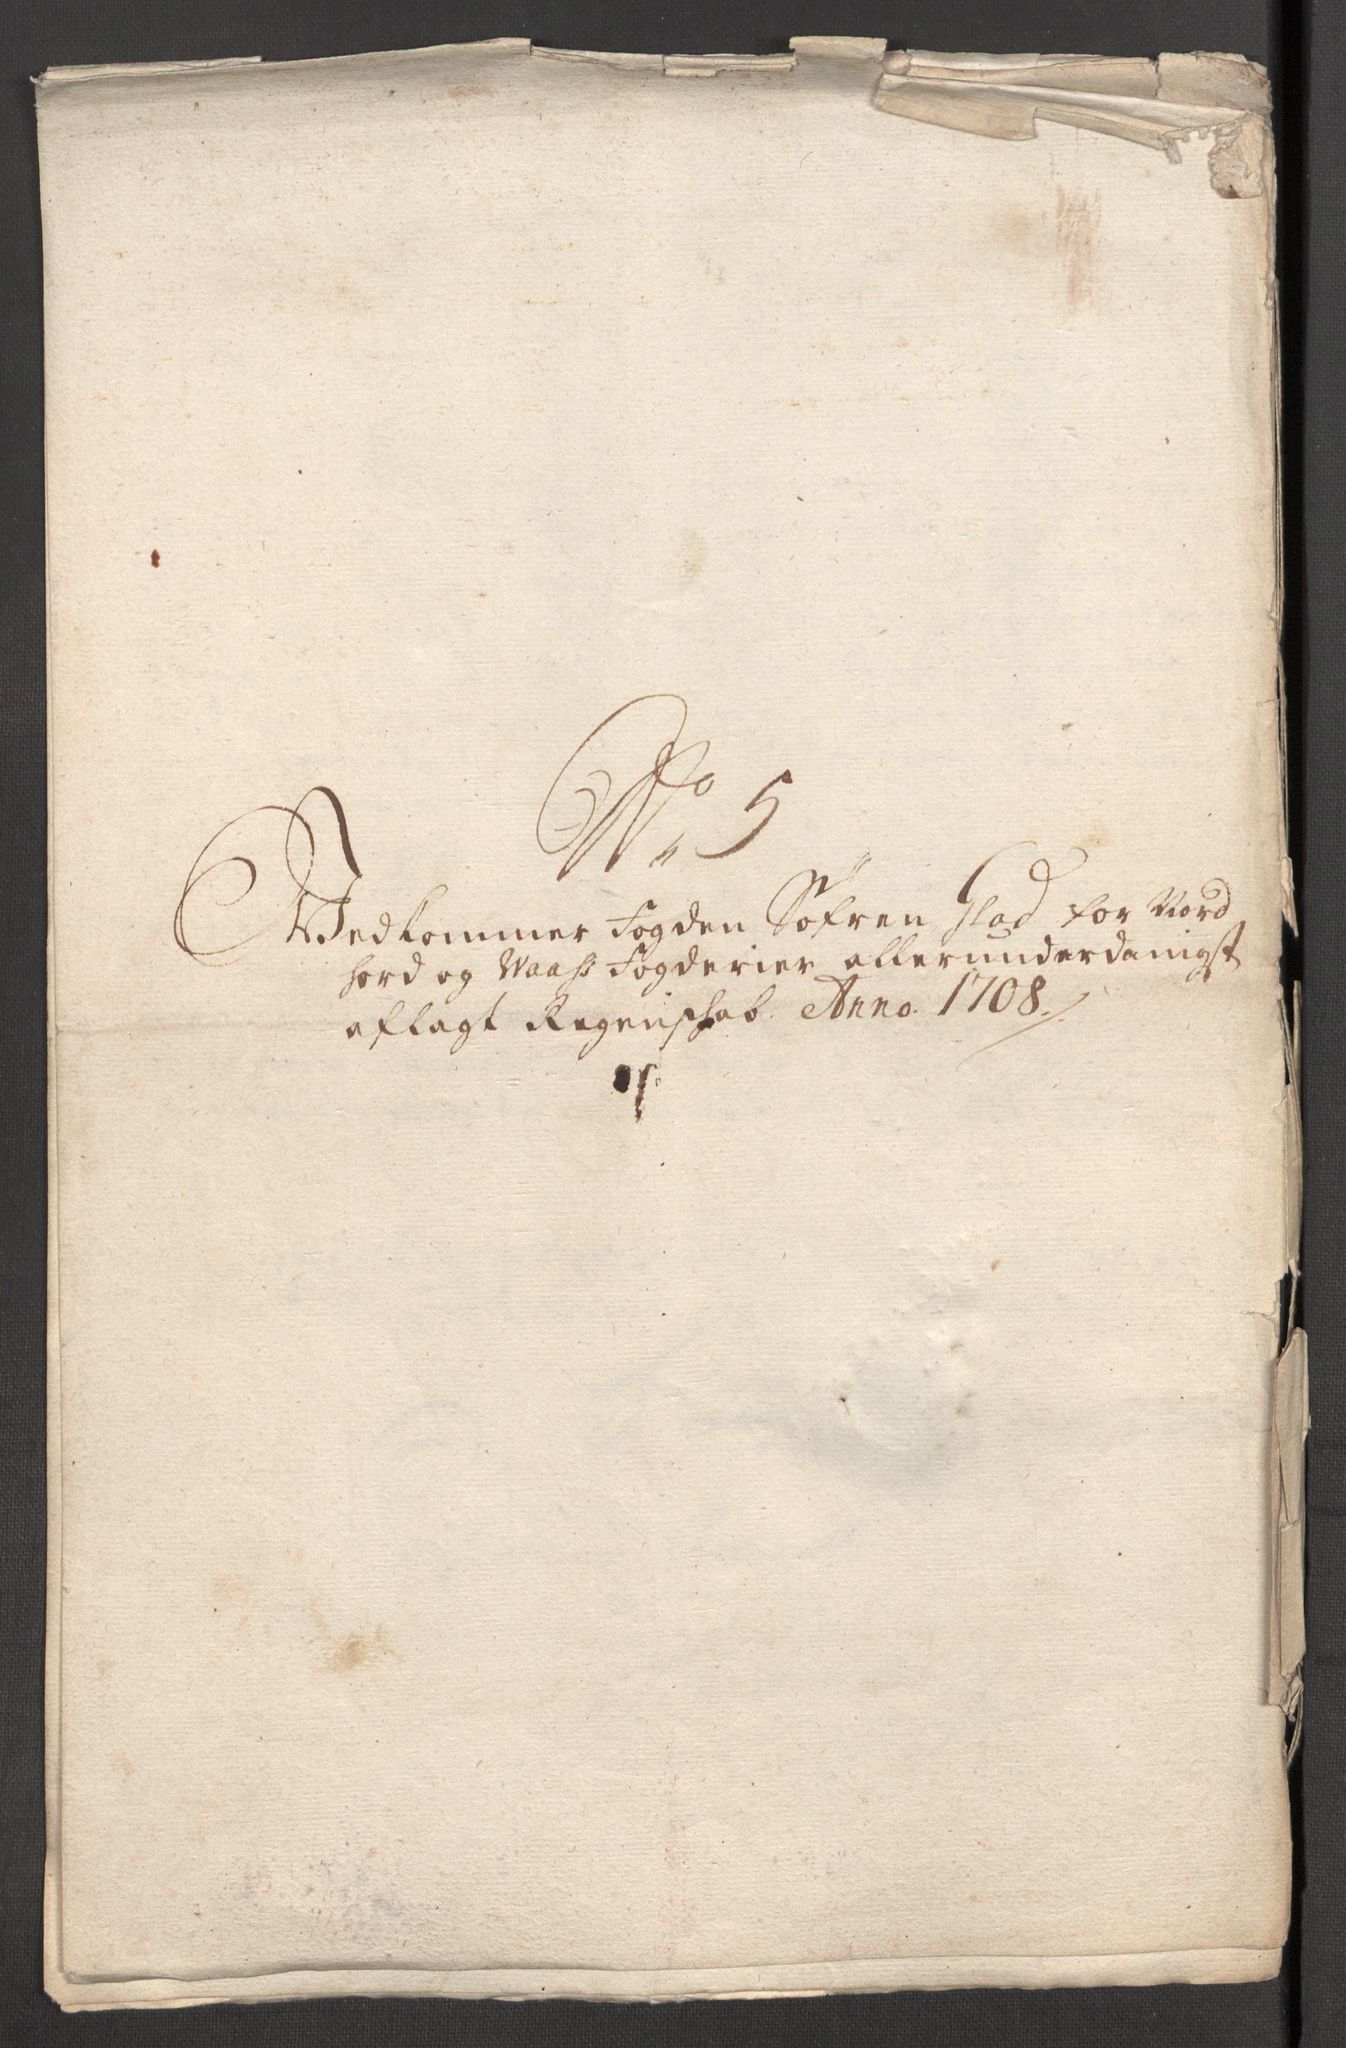 No 5
Vedkommer Fogden Söfren Glad for Nord
hord og Waass Fogderier allerunderdanigst
aflagt Regenschab. Anno. 1708.